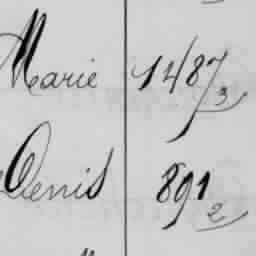 Marie 1487/3
Denis 891/2